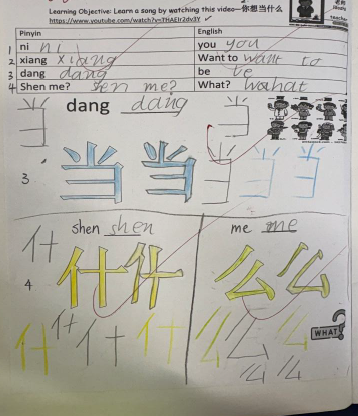 Learning Objective: Learn a song by watching this video—你想当什么
https://www.youtube.com/watch?v=THAEIr2dv3Y
Pinyin English
1 ni ni you you
2 xiang xiang Want to want to
3 dang dang be be
4 Shen me? shen me? What? wahat
dang dang
3 当 当
shen shen me me
什 什 什 么 么
4
什 什 什 什 么 么 么
WHAT?
么 么